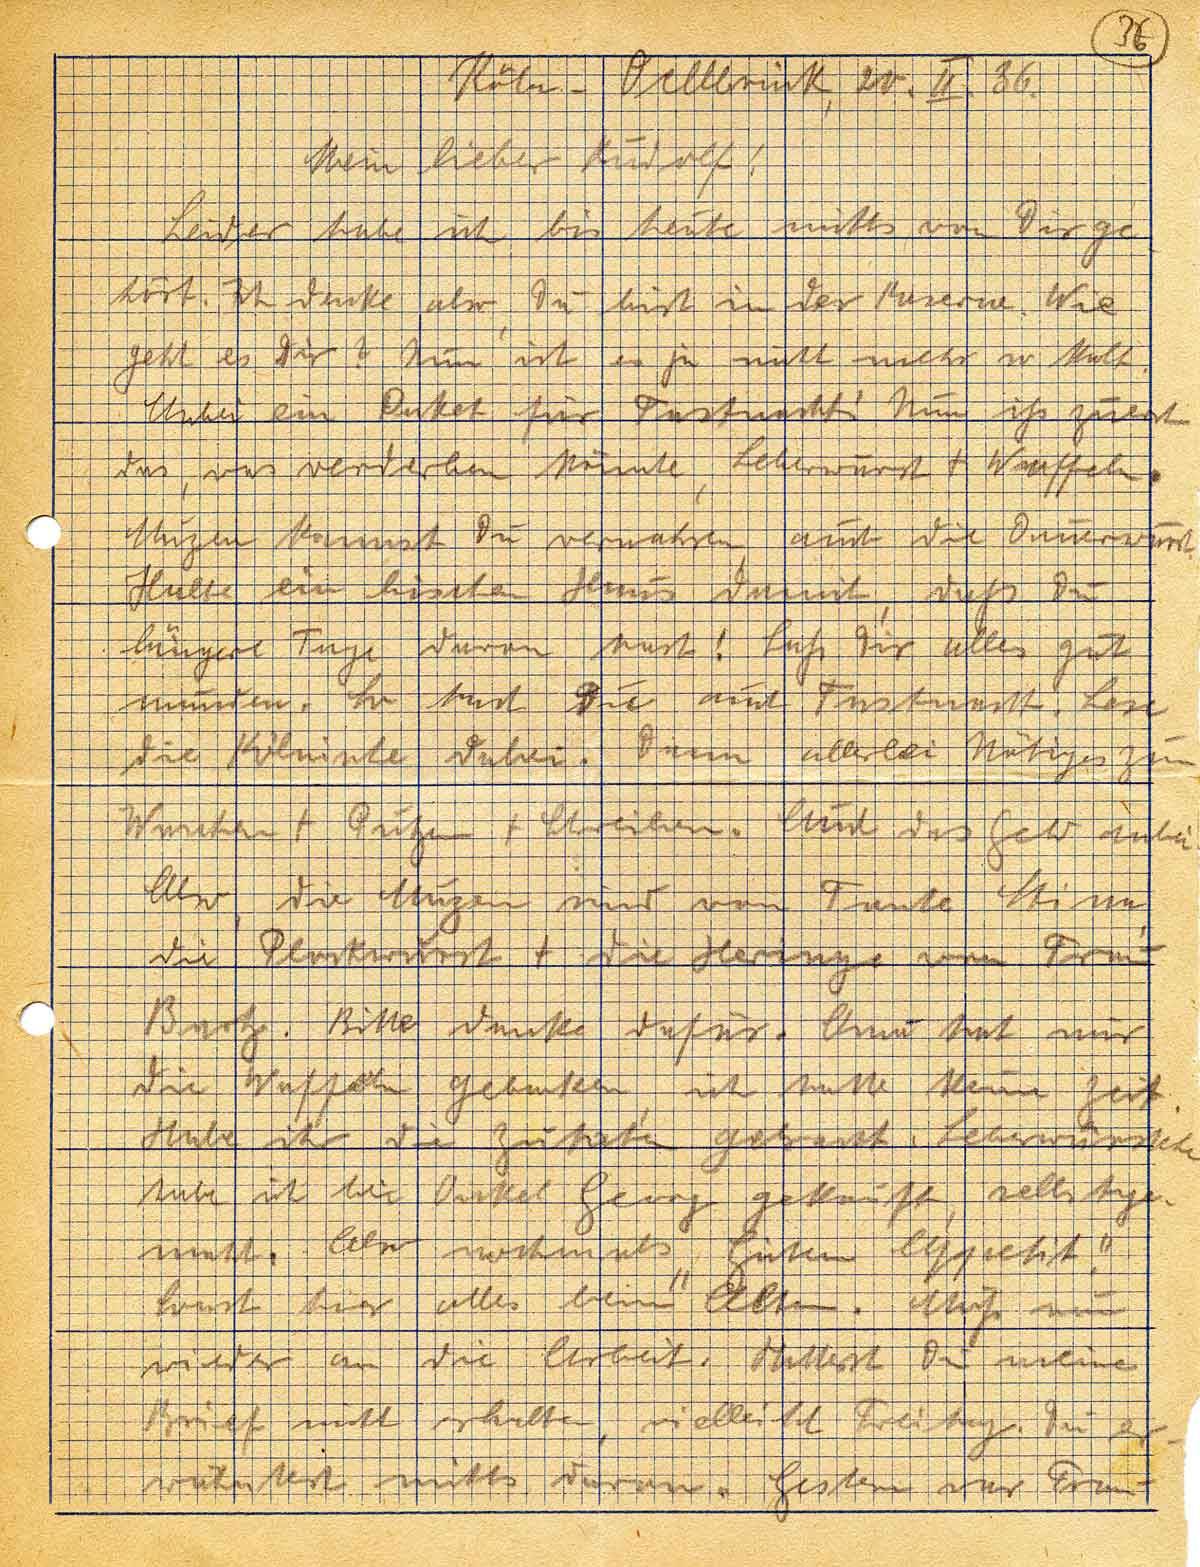 36
Köln-Dellbrück, 20. II. 36.
Mein lieber Rudolf!
Leider habe ich bis heute nichts von Dir ge-
hört. Ich denke aber, Du bist in der Kaserne. Wie
geht es Dir? Nun ist es ja nicht mehr so kalt.
Anbei ein Paket für Fastnacht! Nun iß zuerst
das, was verderben könnte, Leberwurst + Waffeln.
Muzen kannst Du verwahren, auch die Dauerwurst.
Halte ein bischen Haus damit, daß Du
längere Tage daran hast! Laß Dir alles gut
munden. So hast Du auch Fastnacht. Lese
die Kölnische dabei. Dann allerlei Nötiges zum
Waschen + Putzen + Schreiben. Auch das Geld anbei.
Also, die Muzen sind von Tante Stina,
die Plockwurst + die Heringe von Frau
Bartz. Bitte danke dafür. Änne hat mir
die Waffeln gebacken, ich hatte keine Zeit.
Habe ihr die Zutaten gebracht. Leberwürstche
habe ich bei Onkel Georg gekauft, selbstge-
macht. Also nochmals "Guten Appetit!"
Sonst hier alles beim "Alten. Muß nun
wieder an die Arbeit. Hattest Du meinen
Brief nicht erhalten, vielleicht Freitag. Du er-
wähntest nichts davon. Gestern war Frau